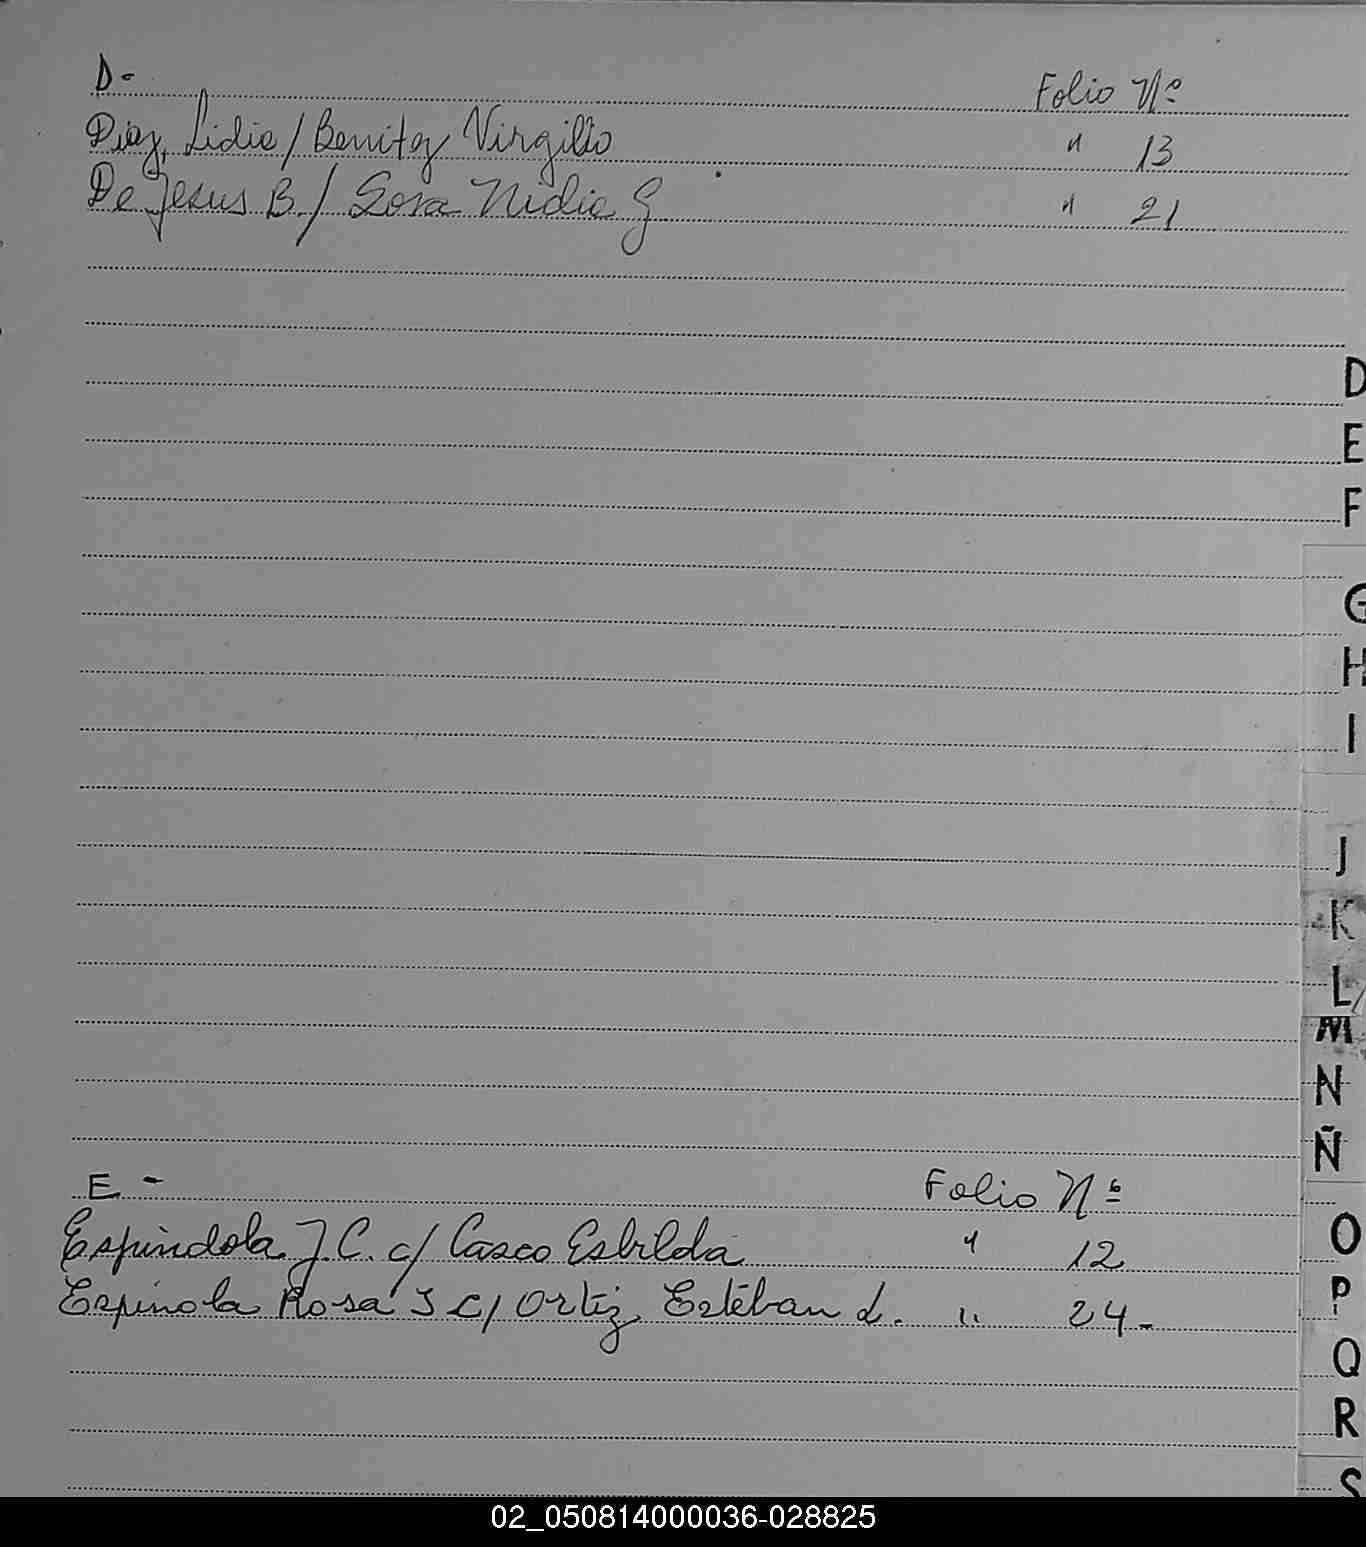 D-
Folio Nº
Diaz, Lidia / Benitez Virgilio " 13
De Jesus B. / Sosa Nidia G " 21
D
E
F
G
H
I
J
K
L
M
N
Ñ
E -
Folio Nº
Espindola J C. c/ Casco Esbilda " 12
Espinola Rosa S c/ Ortiz Estéban L. " 24-
O
P
Q
R
S
02_050814000036-028825